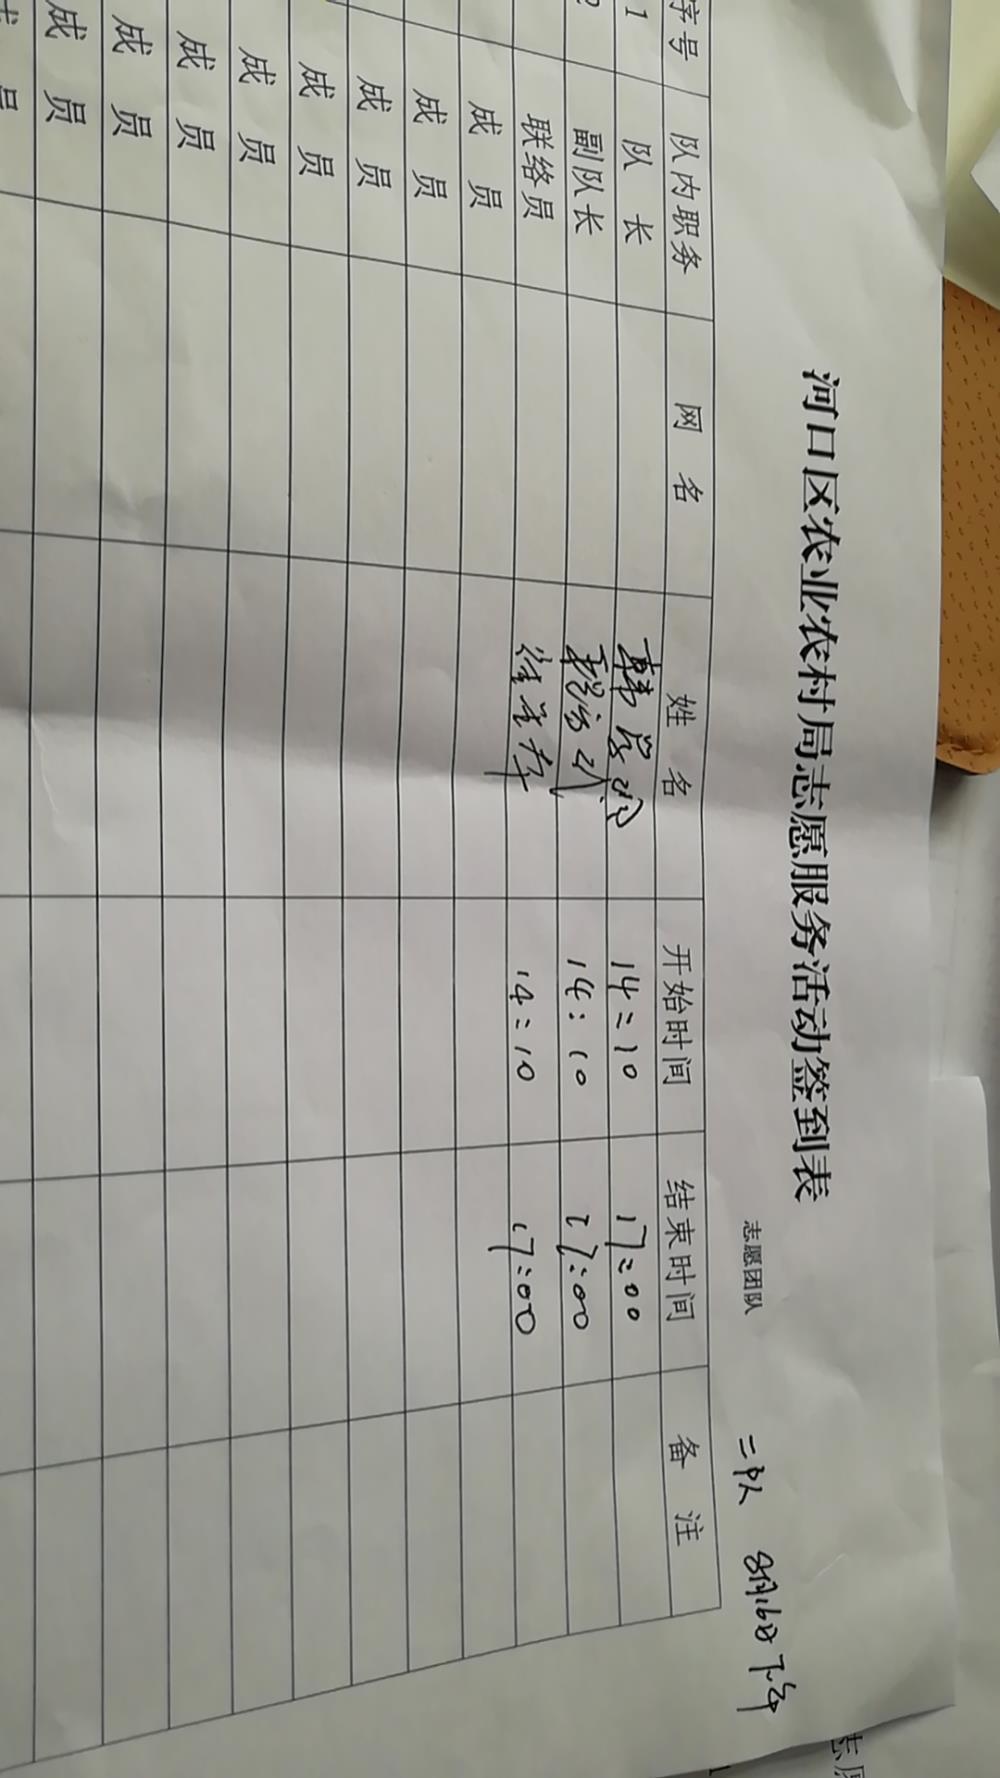 河口区农业农村局志愿服务活动签到表
志愿团队 二队 8月16日 下午
序号 队内职务 网 名 姓 名 开始时间 结束时间 备 注
1 队 长 韩 14:10 17:00
2 副队长 14:10 17:00
联络员 徐 14:10 17:00
成 员
成 员
成 员
成 员
成 员
成 员
成 员
成 员
成 员
志愿